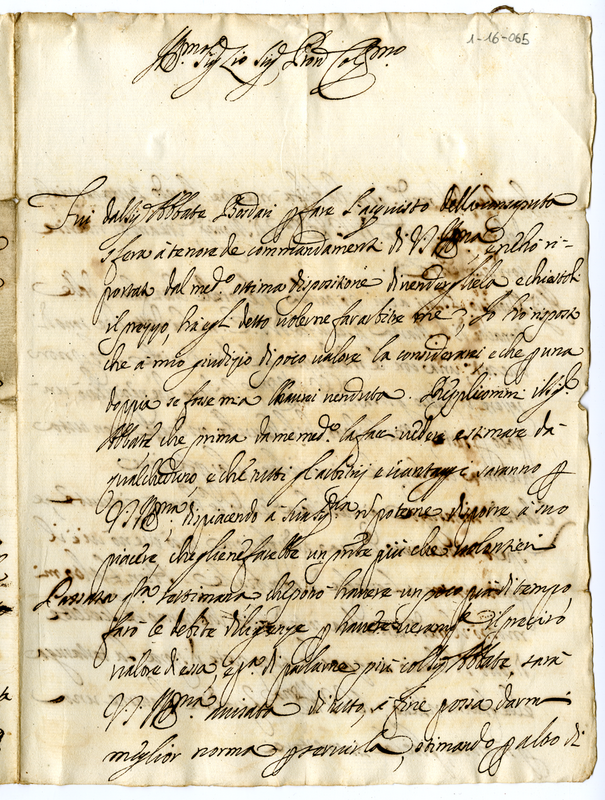 1-16-065
Ill.mo Sig.r Zio Sig.r Pron Col.mo
Fui dal Sig. Abbate Bordari p fare l'acquisto della
sfera à tenore de commandamenti di V. S. Ill.ma, e ri-
portata dal med.o ottima dispositione di vendergliela e chiestoli
il prezzo, ha egli detto volerne far arbitro me, Io ho risposto
che à mio giuditio di poco valore la considerarei e che p una
doppia se fosse mia l'haurei venduta. Replicommi il Sig.
Abbate che prima da me med.o la facci vedere e stimare da
qualcheduno, e che tutti gl'arbitrij e vantaggi saranno p
V. S. Ill.ma, dispiacendo a Sua Sig.ria n poterne disporre à suo
piacere, che gliene farebbe un p'nte più che volontieri
Passata q.ta settimana che potrò havere un poco più di tempo
farò le debite diligenze p havere veram.te il preciso
valore di essa, e p.a di parlarne più col Sig. Abbate, sarà
V. S. Ill.ma avvisata di tutto, à fine possa darmi
miglior norma p servirla, stimando p altro di